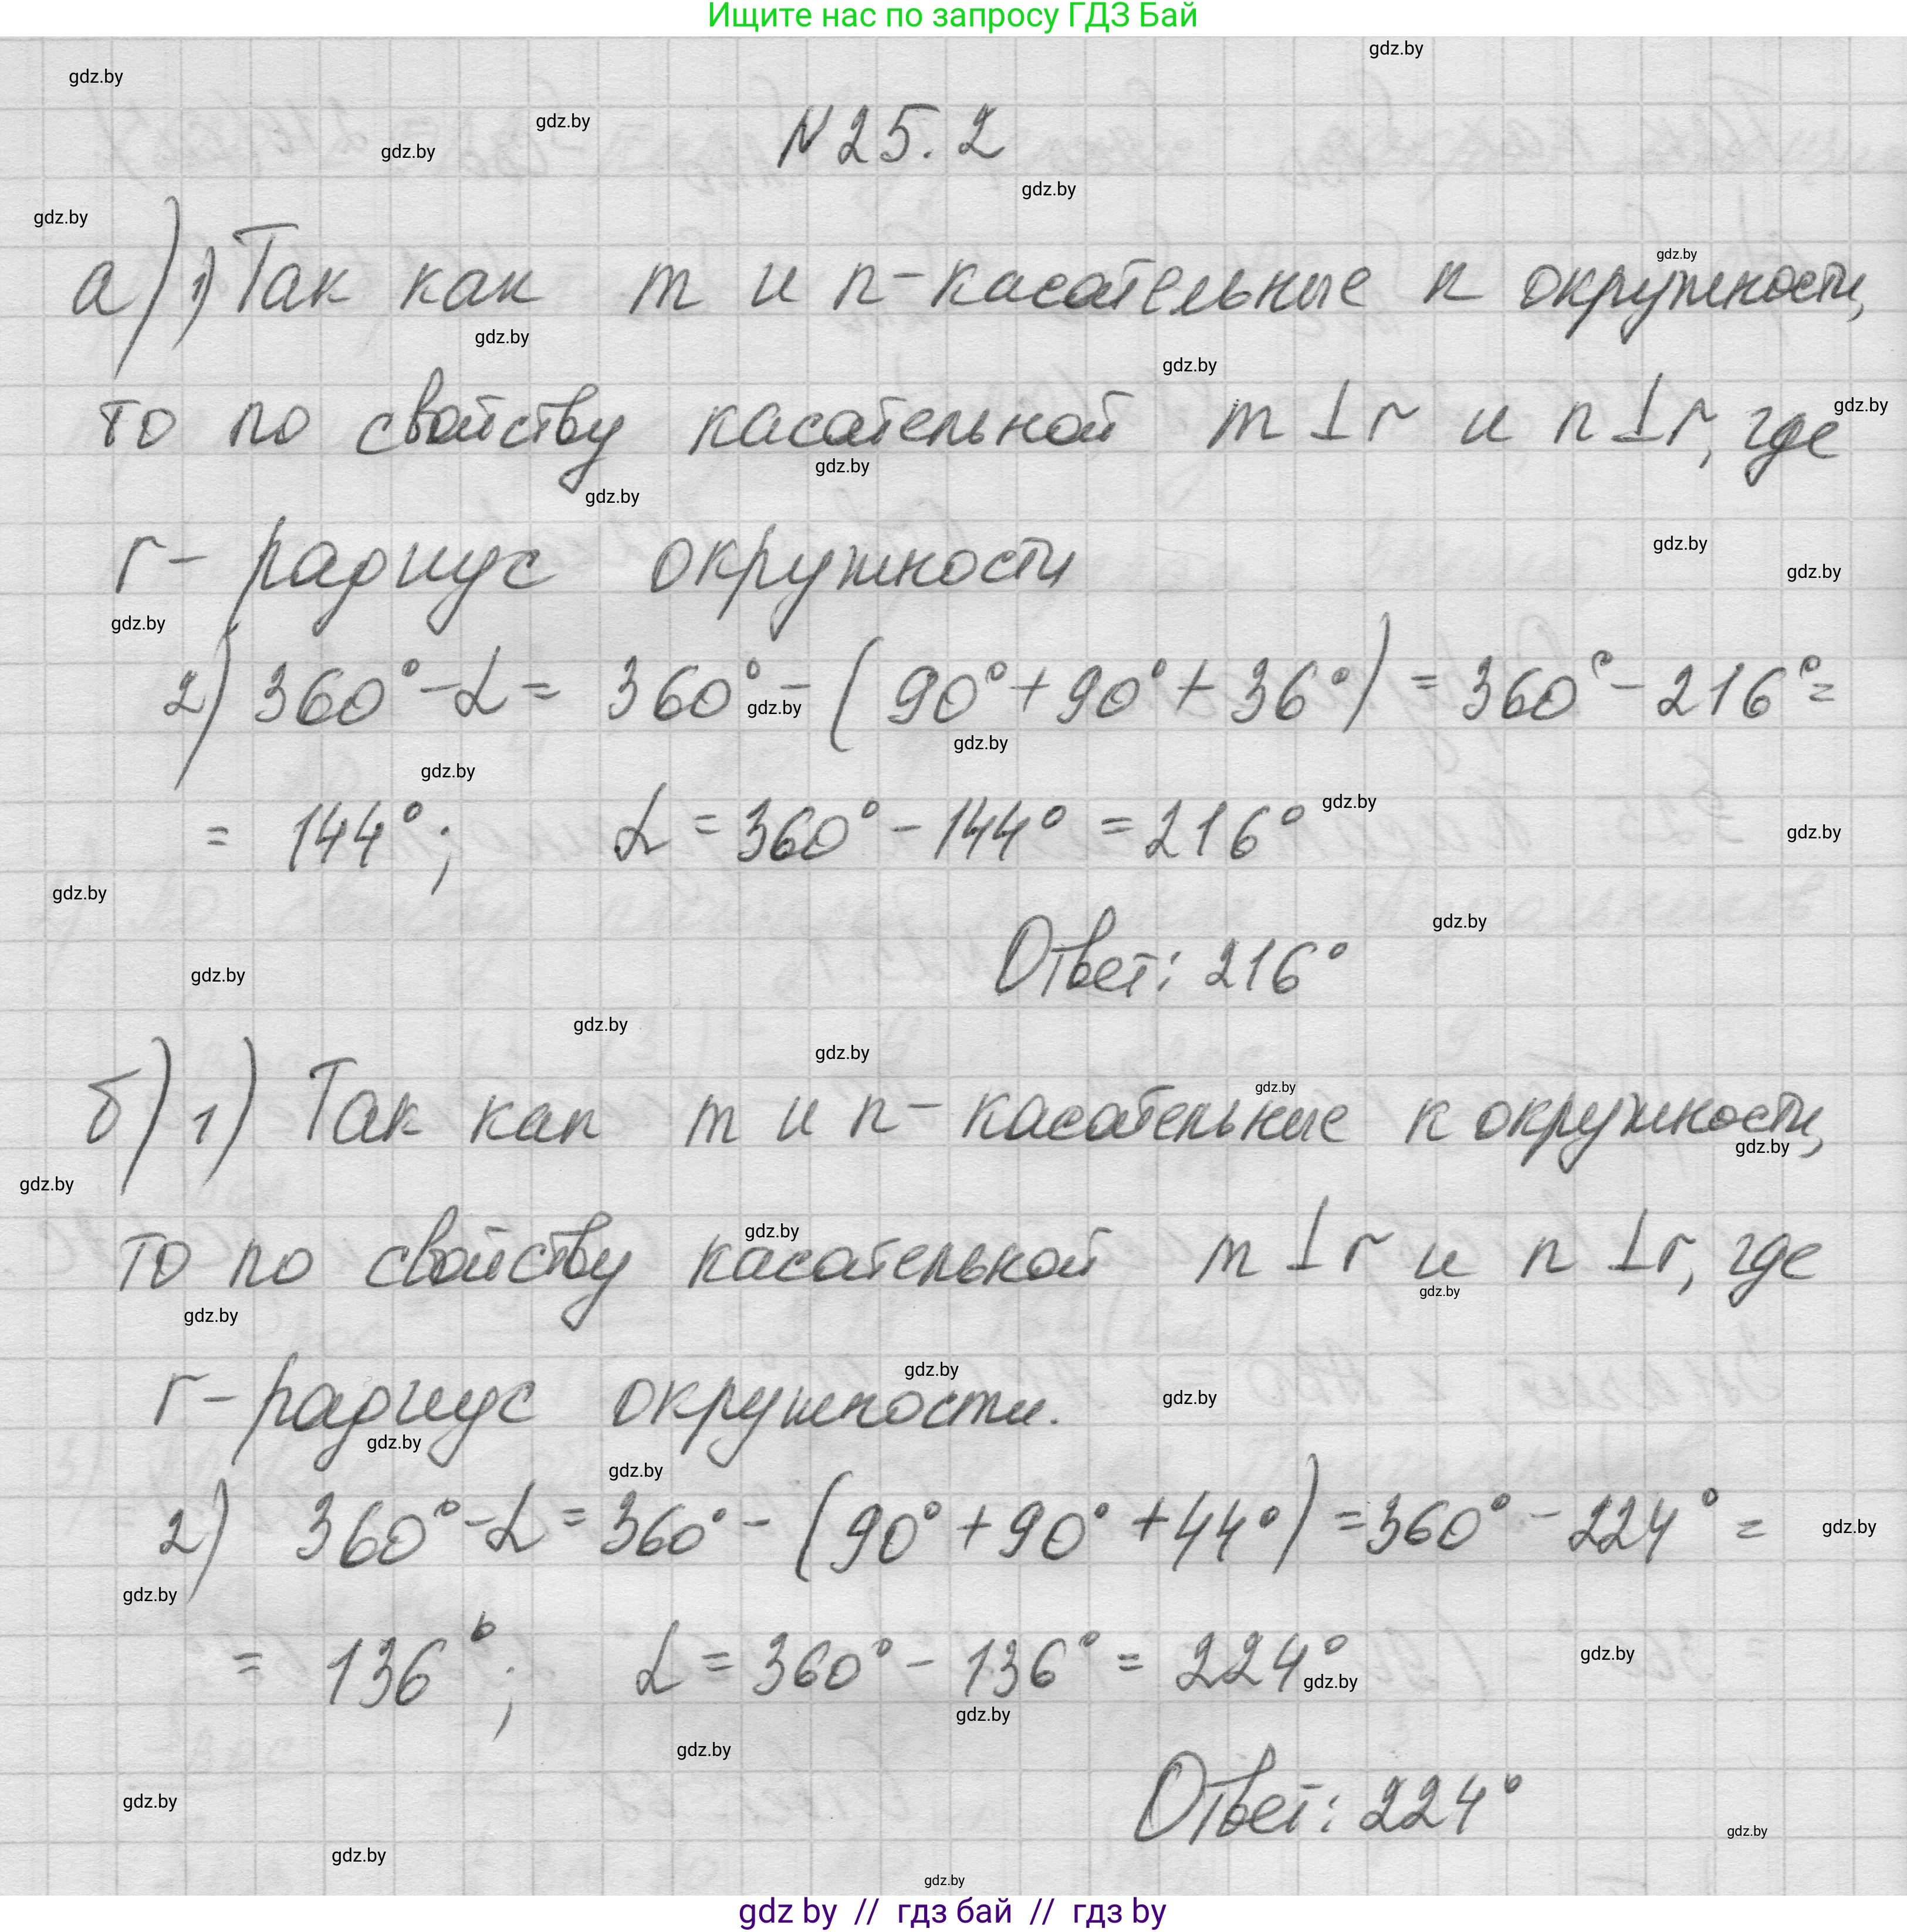 Ищите нас по запросу ГДЗ Бай
N 25.2
а) 1) Так как m и n - касательные к окружности,
то по свойству касательной m ⊥ r и n ⊥ r, где
r - радиус окружности
2) 360° - α = 360° - (90° + 90° + 36°) = 360° - 216° =
= 144°; α = 360° - 144° = 216°
Ответ: 216°
б) 1) Так как m и n - касательные к окружности,
то по свойству касательной m ⊥ r и n ⊥ r, где
r - радиус окружности.
2) 360° - α = 360° - (90° + 90° + 44°) = 360° - 224° =
= 136°; α = 360° - 136° = 224°
Ответ: 224°
gdz by // гдз бай // гдз by